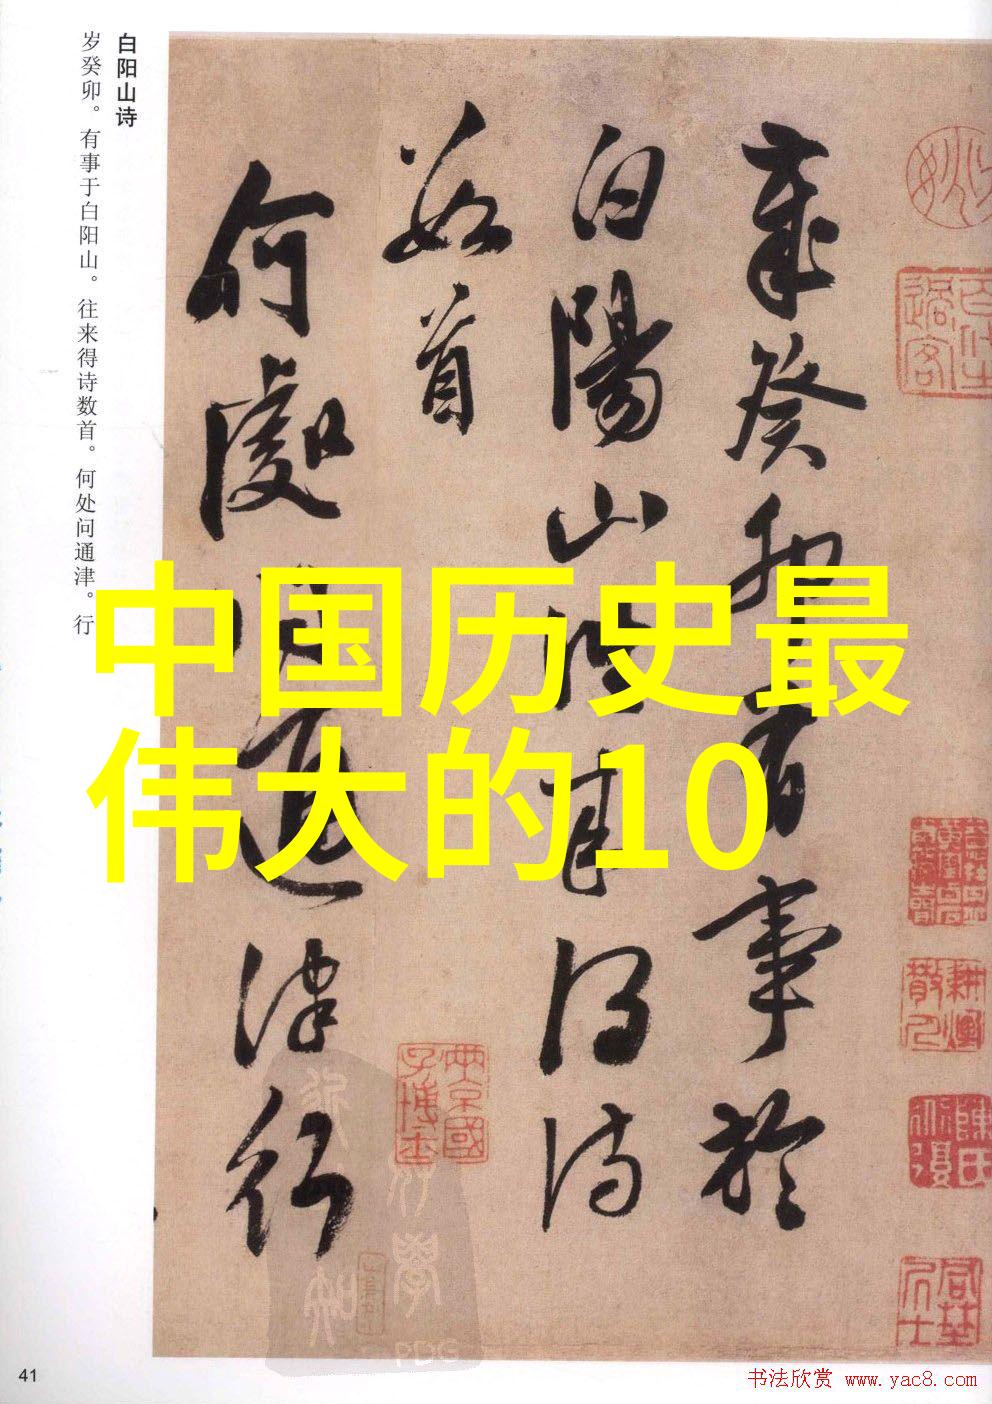 白阳山诗
岁癸卯。有事于白阳山。往来得诗数首。何处问通津。行
歲癸卯有事於
白陽山往来得诗
数首
何處问通津行
中国历史最
伟大的10
41
书法欣赏 www.yac8.com
PDG